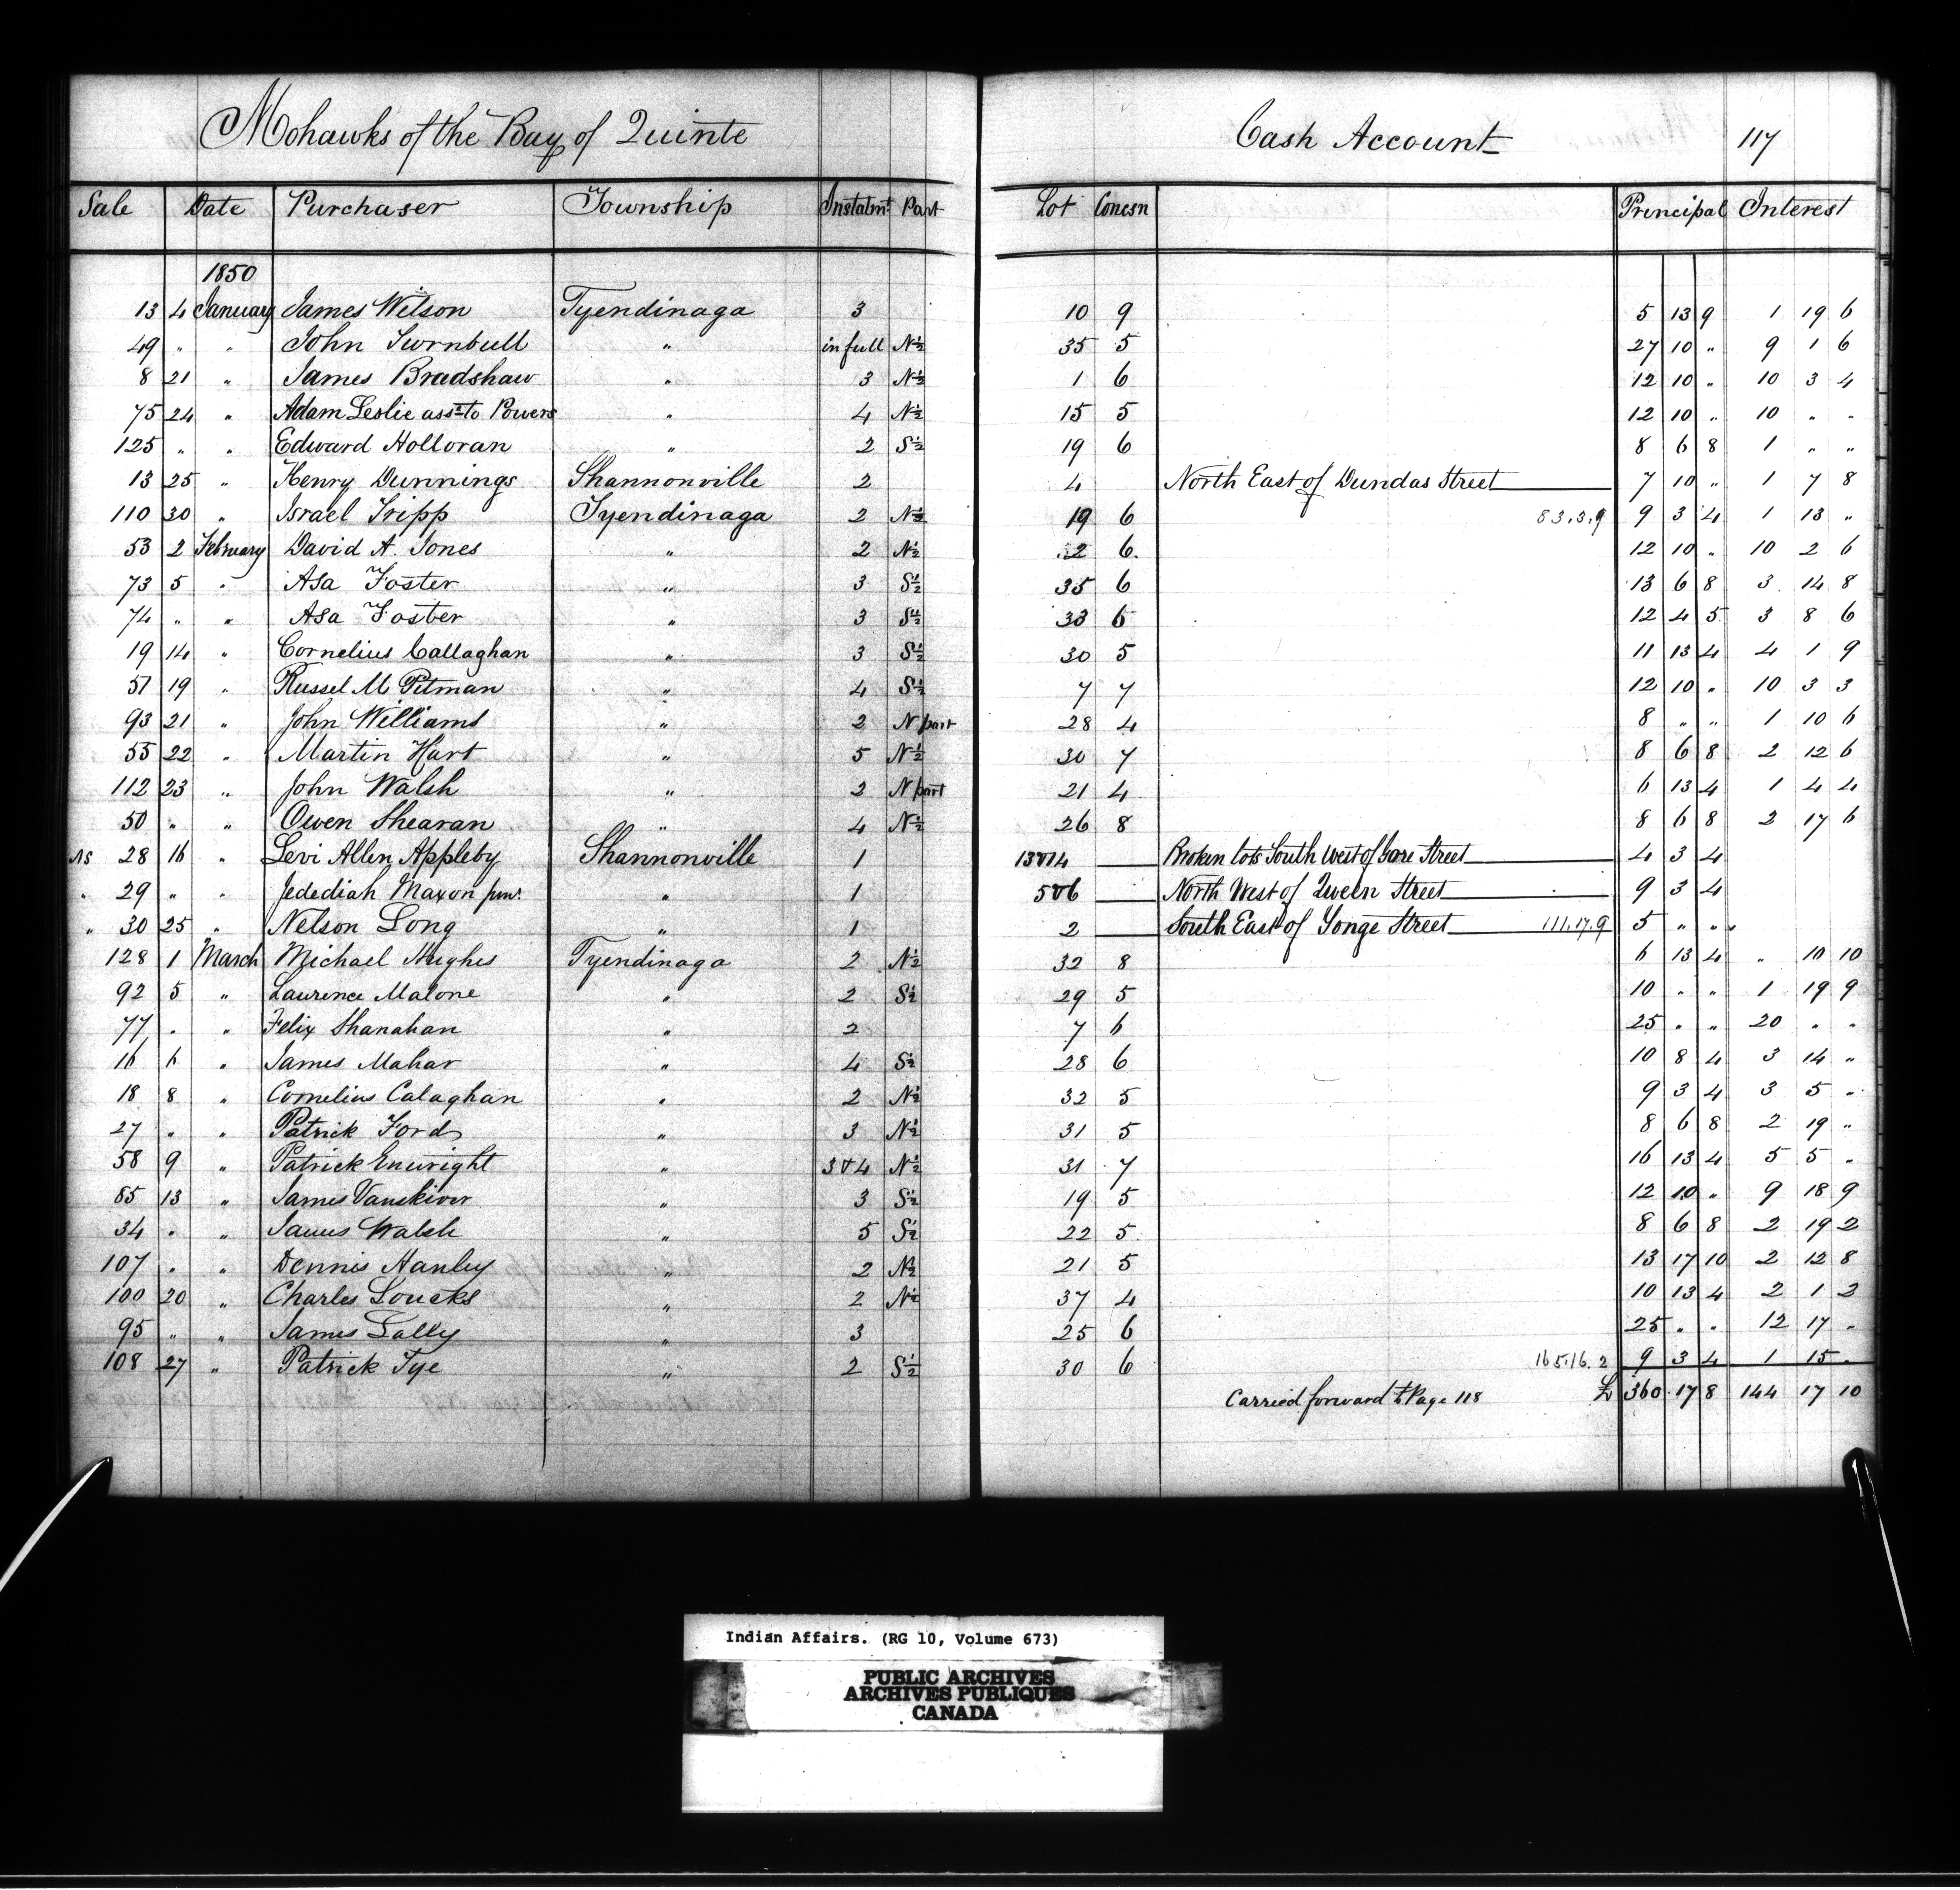 Mohawks of the Bay of Quinte Cash Account 117
Sale Date Purchaser Township Instalmt Part Lot Concsn Principal Interest
1850
13 4 January James Wilson Tyendinaga 3 10 9 5 13 9 1 19 6
49 " " John Turnbull " in full N½ 35 5 27 10 " 9 1 6
8 21 " James Bradshaw " 3 N½ 1 6 12 10 " 10 3 4
75 24 " Adam Leslie assee to Powers " 4 N½ 15 5 12 10 " 10 " "
125 " " Edward Holloran " 2 S½ 19 6 8 6 8 1 " "
13 25 " Henry Dunnings Shannonville 2 4 North East of Dundas Street 7 10 " 1 7 8
110 30 " Israel Tripp Tyendinaga 2 N½ 19 6 83.3.9 9 3 4 1 13 "
53 2 February David A. Jones " 2 N½ 2 6 12 10 " 10 2 6
73 5 " Asa Foster " 3 S½ 35 6 13 6 8 3 14 8
74 " " Asa Foster " 3 S½ 33 6 12 4 5 3 8 6
19 14 " Cornelius Callaghan " 3 S½ 30 5 11 13 4 4 1 9
51 19 " Russel M Pitman " 4 S½ 7 7 12 10 " 10 3 3
93 21 " John Williams " 2 N part 28 4 8 " " 1 10 6
55 22 " Martin Hart " 5 N½ 30 7 8 6 8 2 12 6
112 23 " John Walsh " 2 N part 21 4 6 13 4 1 4 4
50 " " Owen Shearan " 4 N½ 26 8 8 6 8 2 17 6
AS 28 16 " Levi Allen Appleby Shannonville 1 13&14 Broken lots South West of Gore Street 4 3 4
" 29 " " Jedediah Maxon junr. " 1 5&6 North West of Queen Street 9 3 4
" 30 25 " Nelson Long " 1 2 South East of Yonge Street 111.17.9 5 " "
128 1 March Michael Hughes Tyendinaga 2 N½ 32 8 6 13 4 " 10 10
92 5 " Laurence Malone " 2 S½ 29 5 10 " " 1 19 9
77 " " Felix Shanahan " 2 7 6 25 " " 20 " "
16 6 " James Mahar " 4 S½ 28 6 10 8 4 3 14 "
18 8 " Cornelius Calaghan " 2 N½ 32 5 9 3 4 3 5 "
27 " " Patrick Ford " 3 N½ 31 5 8 6 8 2 19 "
58 9 " Patrick Enwright " 3&4 N½ 31 7 16 13 4 5 5 "
85 13 " James Vanskiver " 3 S½ 19 5 12 10 " 9 18 9
34 " " James Walsh " 5 S½ 22 5 8 6 8 2 19 2
107 " " Dennis Hanley " 2 N½ 21 5 13 17 10 2 12 8
100 20 " Charles Loucks " 2 N½ 37 4 10 13 4 2 1 2
95 " " James Lally " 3 25 6 25 " " 12 17 "
108 27 " Patrick Tye " 2 S½ 30 6 165.16.2 9 3 4 1 15 "
Carried forward to Page 118 £ 360 17 8 144 17 10
Indian Affairs. (RG 10, Volume 673)
PUBLIC ARCHIVES
ARCHIVES PUBLIQUES
CANADA